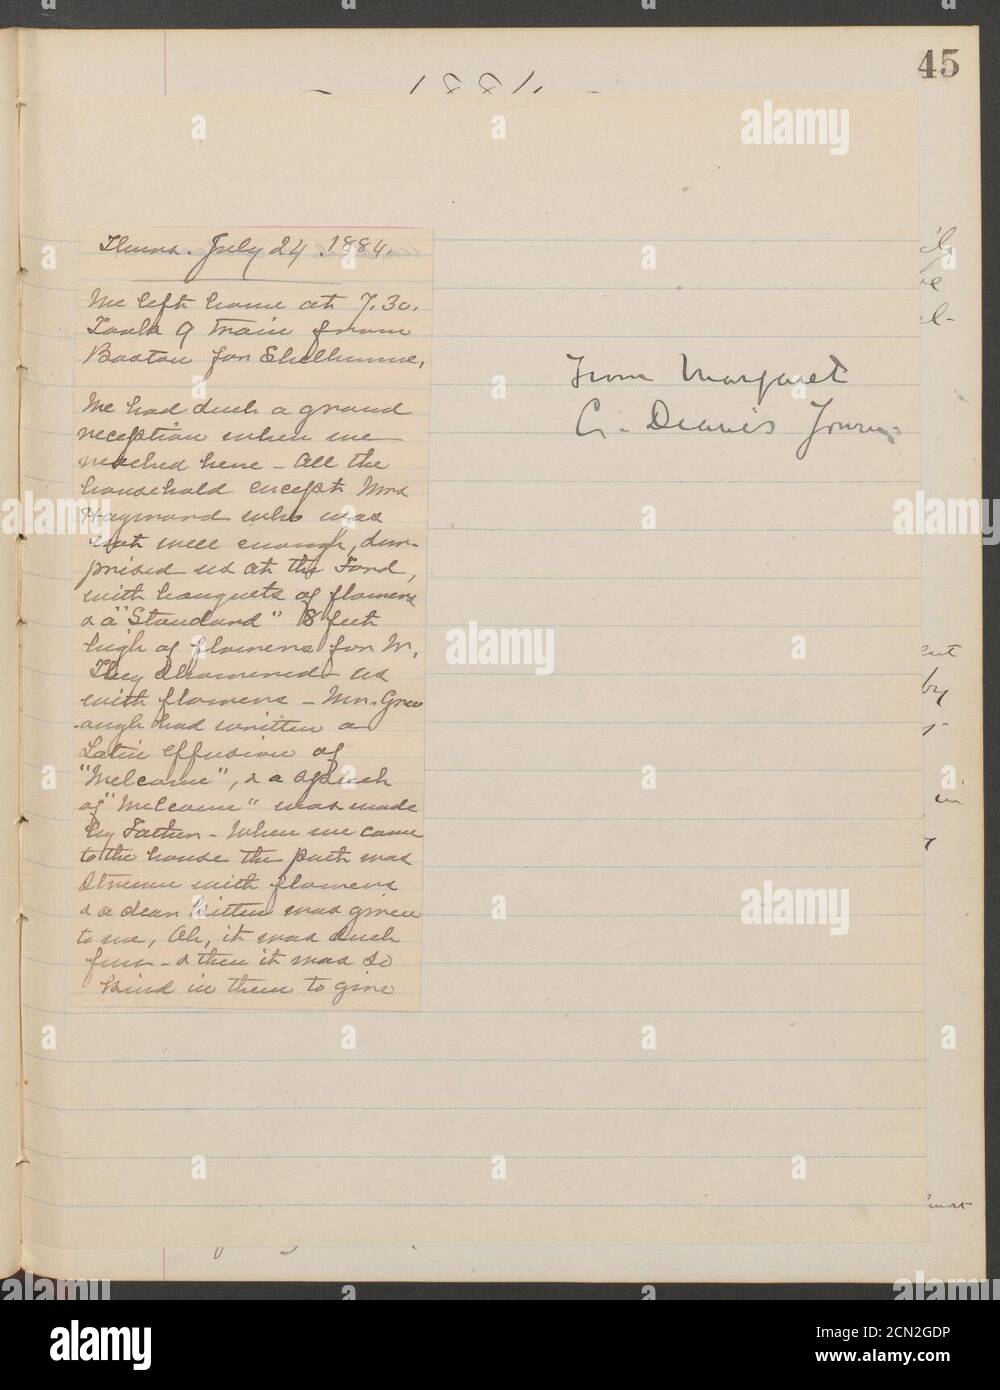 45
1884
Thurs. July 24. 1884.
We left home at 7.30.
Took 9 train from
Boston for Shelburne,
We had such a grand
reception when we
reached here - All the
household except Mrs
Hayward who was
not well enough, sur-
prised us at the Ford,
with bouquets of flowers
& a "Standard" 8 feet
high of flowers for W.
They showered us
with flowers - Mr. Gree
-ough had written a
Latin effusion of
"Welcome", & a speech
of "Welcome" was made
by Father - When we came
to the house the path was
strewn with flowers
& a dear kitten was given
to me, Oh, it was such
fun - & then it was so
kind in them to give
From Margaret
C. Deane's Journ-
by
in
alamy
Image ID: 2CN2GDP
www.alamy.com